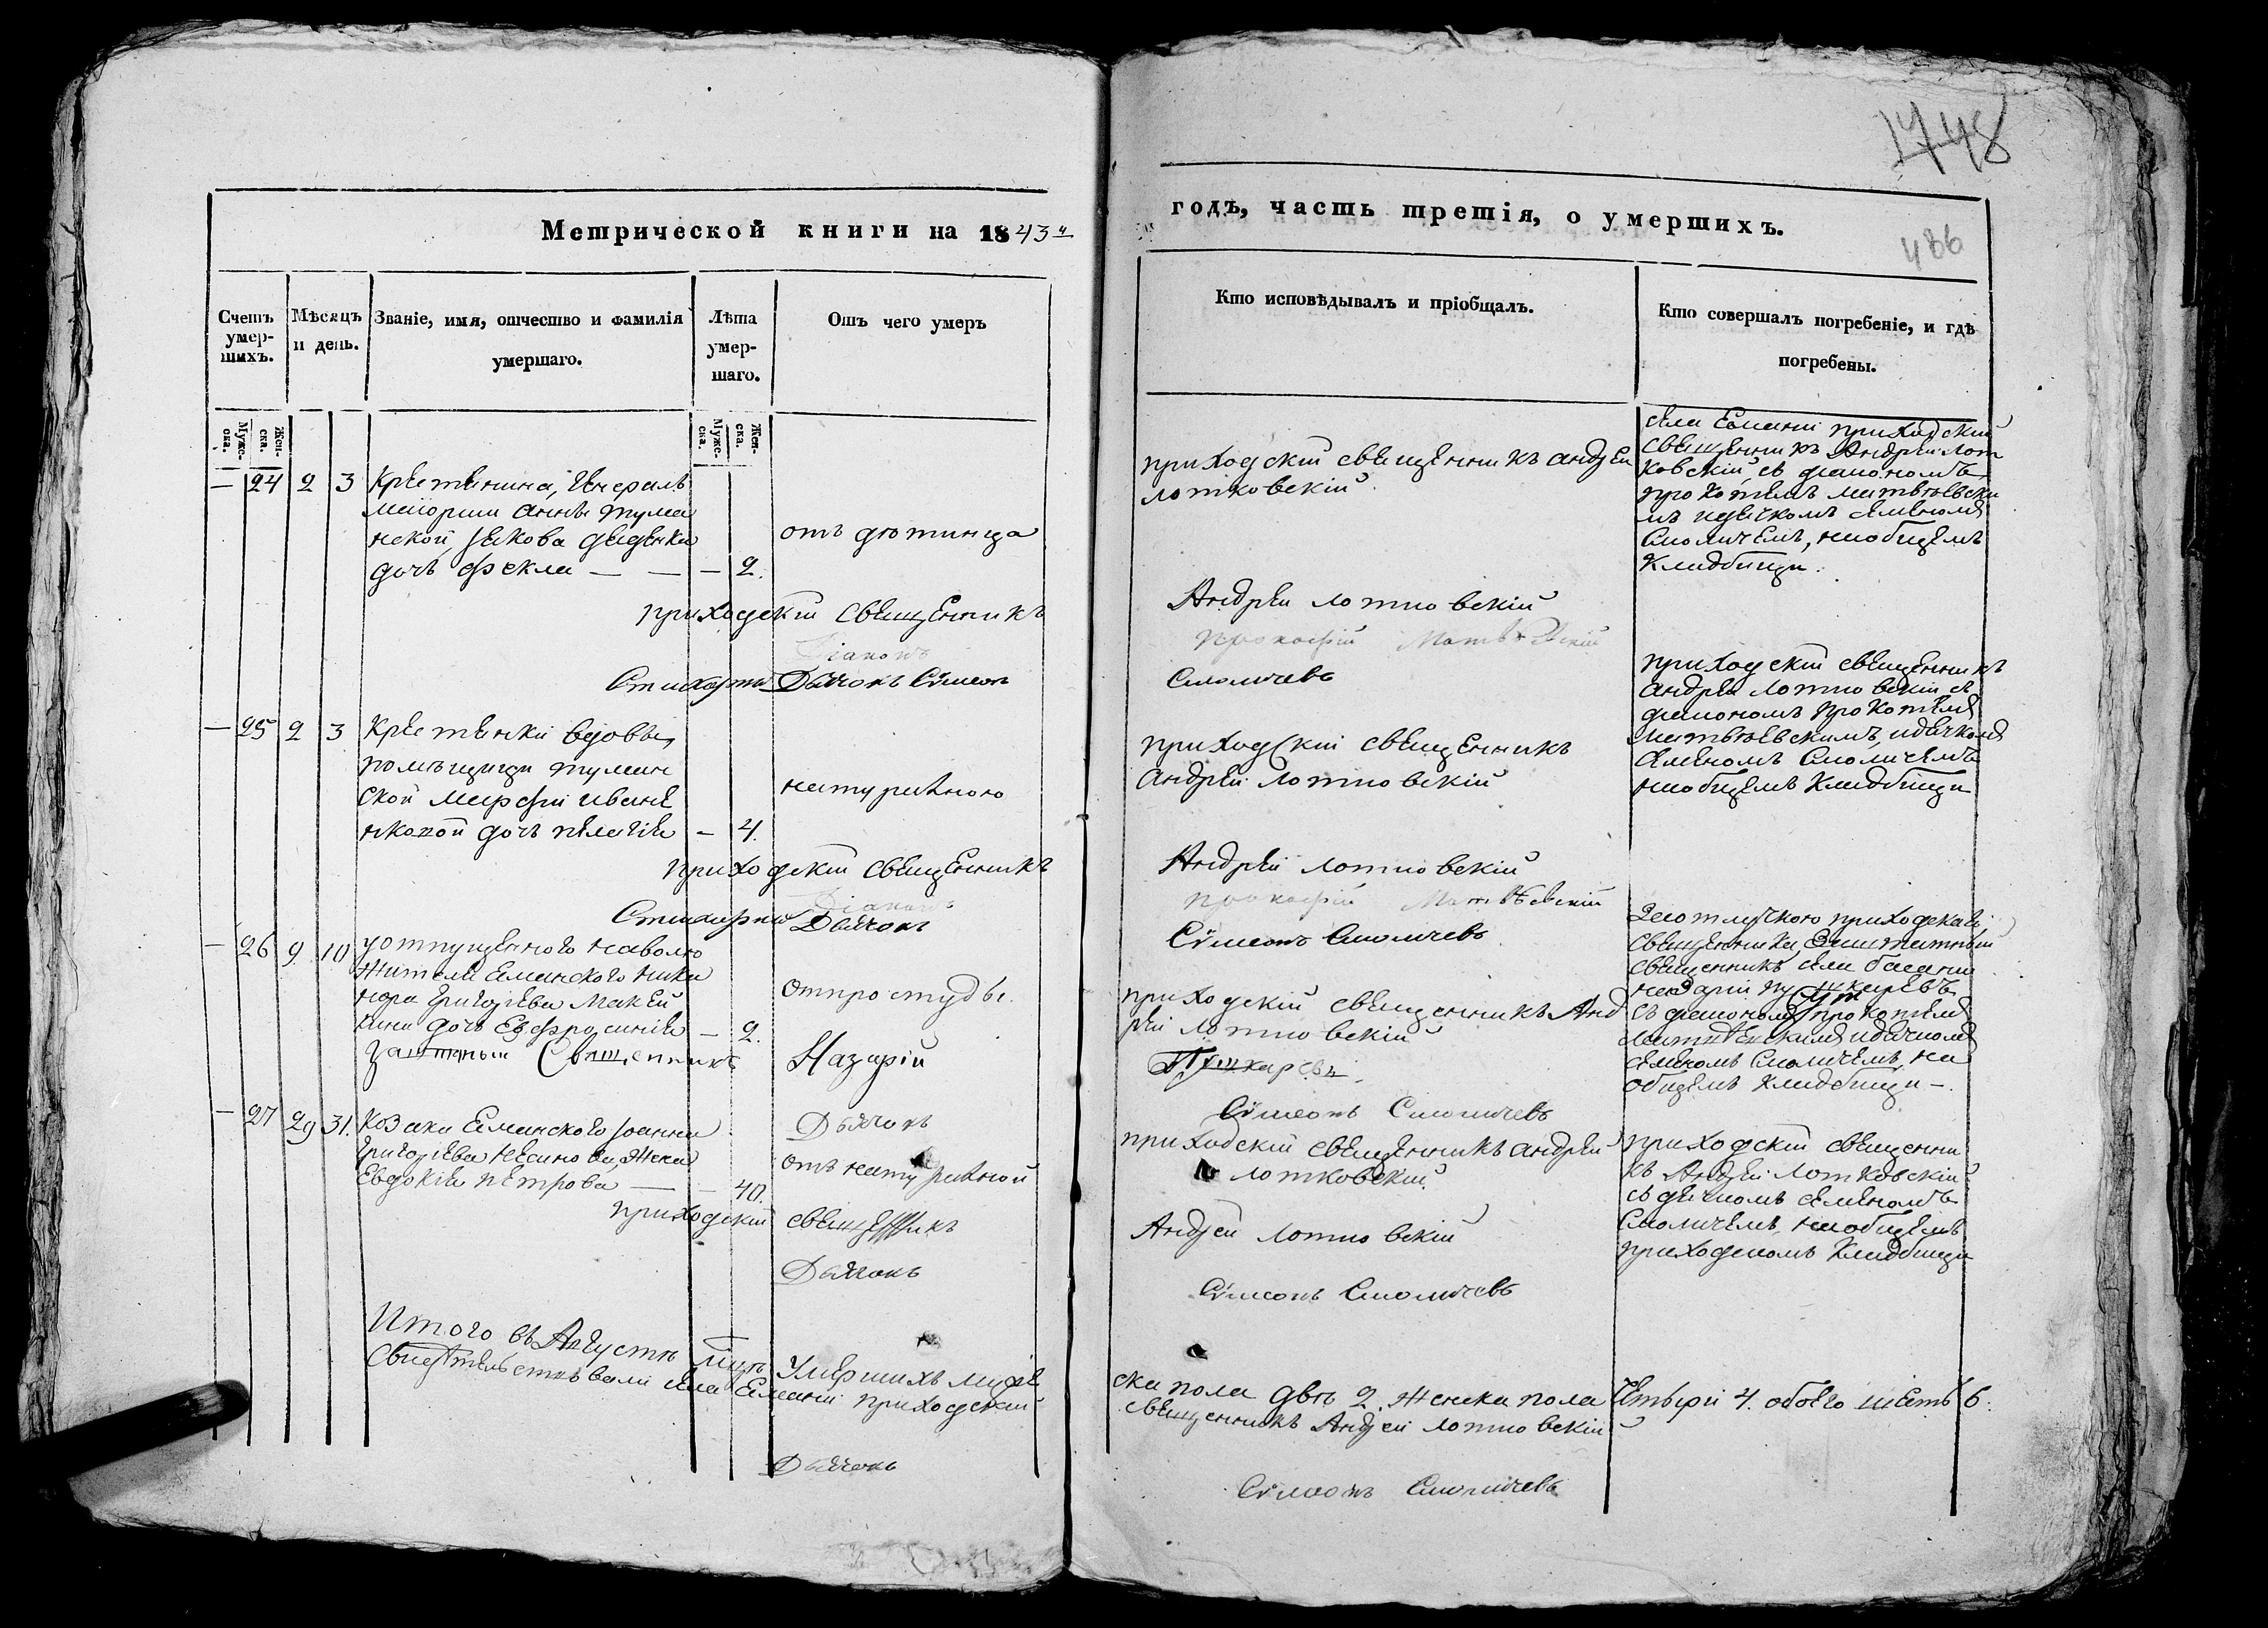 1748
Метрической книги на 1843й
годъ, часть третія, о умершихъ.
486
Счетъ умер-шихъ.
Мѣсяцъ и день.
Званіе, имя, отчество и фамилія умершаго.
Лѣта умер-шаго.
Отъ чего умеръ
Кто исповѣдывалъ и пріобщалъ.
Кто совершалъ погребеніе, и гдѣ погребены.
Мужес-ска.
Жен-ска.
Мужес-ска.
Жен-ска.
— 24 2 3
Крестянина, Генералъ
маіорши Анны Тума
нской, Якова Диденка
дочь Фекла — — — 2.
отъ дѣтинца
приходскій священникъ Андрей
Лотковскій
села Есмани приходскій
священникъ Андрей Лот
ковскій, съ діакономъ
Прокопіемъ Матвѣевски
мъ и дячкомъ Семеномъ
Смоличемъ, на общемъ
кладбищи.
приходскій священникъ
Андрей Лотковскій
Діаконъ
Прокопій Матвѣевскій
Стихарный Дьячокъ Сѵмеонъ
Смоличевъ
— 25 2 3
Крестянки вдовы,
помѣщици Туман
ской Марфы Иване
нковой дочь Пелагія — 4.
натуральною
приходскій священникъ
Андрей Лотковскій
приходскій священникъ
Андрей Лотковскій съ
діакономъ Прокопіемъ
Матвѣевскимъ, и дячкомъ
Семеномъ Смоличемъ
на общемъ кладбищи
приходскій священникъ
Андрей Лотковскій
Діаконъ
Прокопій Матвѣевскій
Стихарный Дьячокъ
Сѵмеонъ Смоличевъ
— 26 9 10
Уотпущенного на волю
жителя Есманского Ника
нора Григорьева
дочь Евфросинія — 2.
от простуды.
приходскій священникъ Анд
рей Лотковскій
За отлучкою приходскаго
священника, Заштатный
священникъ села
Назарій Пушкаревъ
съ діакономъ Прокопіемъ
Матвѣевскимъ и дячкомъ
Семеномъ Смоличемъ, на
общемъ кладбищи —.
Заштатный Священникъ Назарій
Пушкаревъ.
Дьячокъ
Сѵмеонъ Смоличевъ
— 27 29 31.
Козака Есманского Іоанна
Григорьева жена
Евдокія Петрова — — 40.
отъ натуральной
приходскій священникъ Андрей
Лотковскій
приходскій священни
къ Андрей Лотковскій
съ дячкомъ Семеномъ
Смоличемъ на общемъ
приходскомъ кладбищи
приходскій священникъ
Андрей Лотковскій
Дьячокъ
Сѵмеонъ Смоличевъ
Итого въ Августѣ мцѣ, Умершихъ муже
ска пола двѣ 2. женска пола четыри 4. обоего шесть 6.
Свидѣтельствовали села Есмани приходскій
священникъ Андрей Лотковскій
Дьячокъ
Сѵмеонъ Смоличевъ